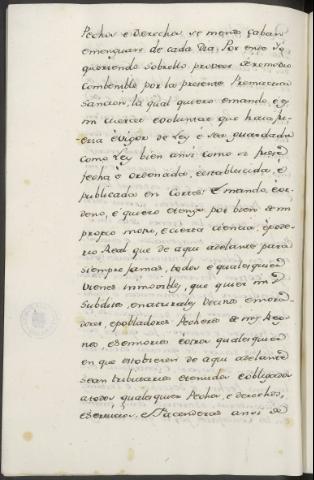 Pechos e Derechos se menos caban
e menguan de cada dia: Por ende Yo
queriendo sobrello proveer de remedio
combenible por la presente Premacica
Sancion, la qual quiero e mando, e es
mi merced e voluntad que haia fu-
erza e vigor de Ley e sea guardada
como Ley bien ansi como si fuese
fecha e ordenada, establecida, e
publicada en Cortes: E mando, e or-
deno, e quiero e tengo por bien de mi
propio motu, e cierta ciencia, e pode-
rio Real que de aqui adelante para
siempre jamas, todos e qualesquier
bienes inmovibles, que quier mis
subditos, e naturales vecinos e mora-
dores, e pobladores Pecheros de mis Rey-
nos, e Senorios e otros qualesquier
en que estobieren de aqui adelante
sean tributarios e tenudos e obligados
a todos qualesquier Pechos, e derechos,
e servicios, e Facenderas ansi de